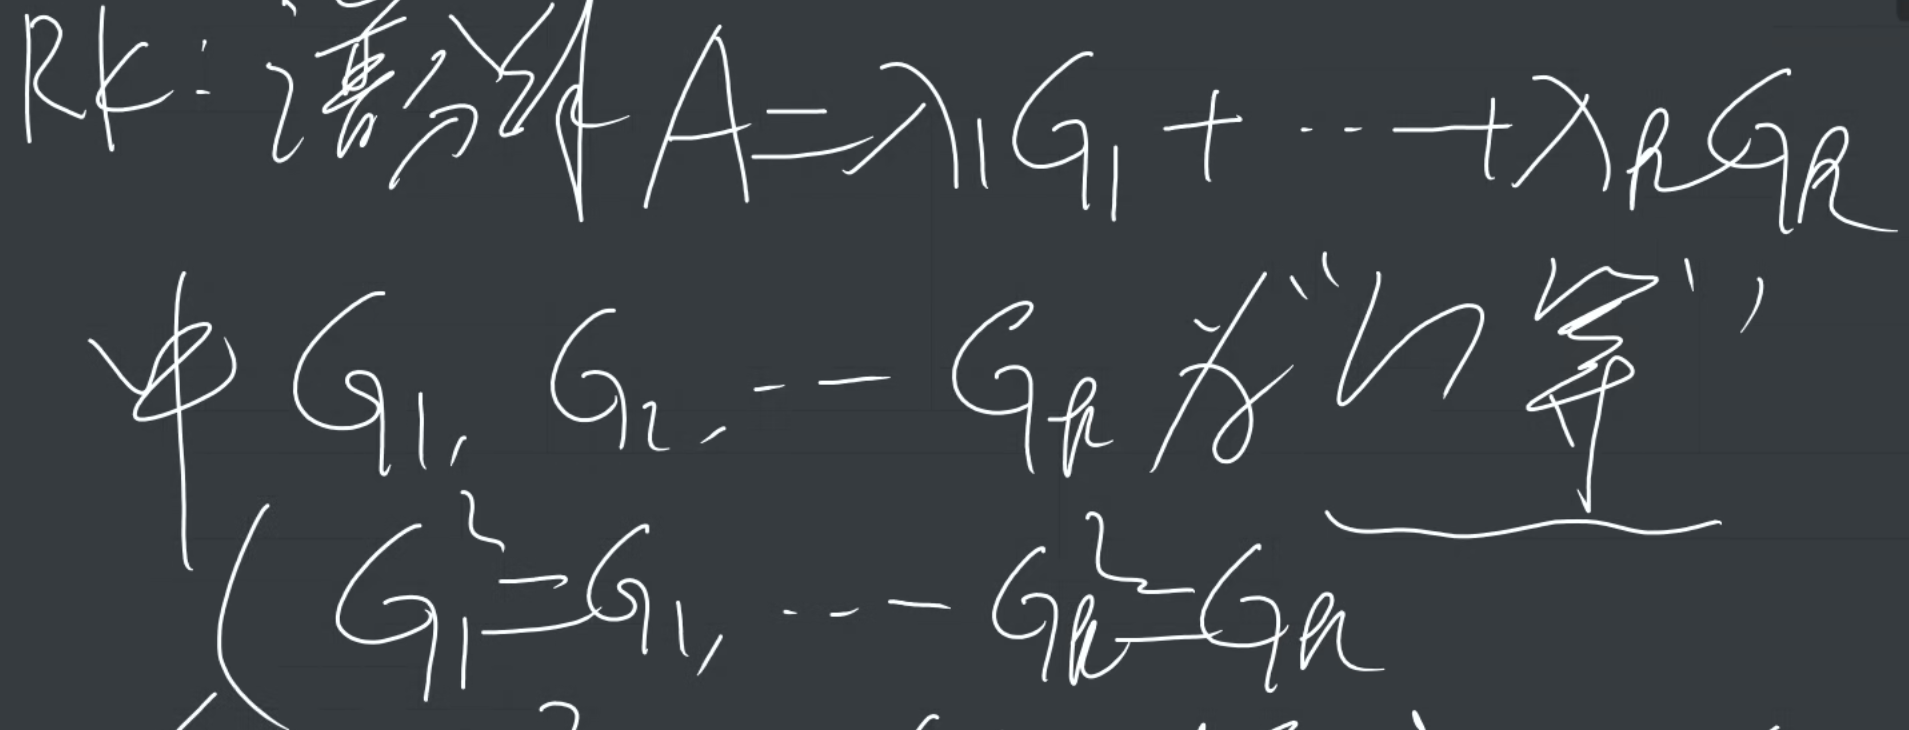 Rk: 谱分解 A=λ1G1+……+λkGk
中 G1, G2, …… Gk 为“幂等”,
( G1²=G1, …… Gk²=Gk